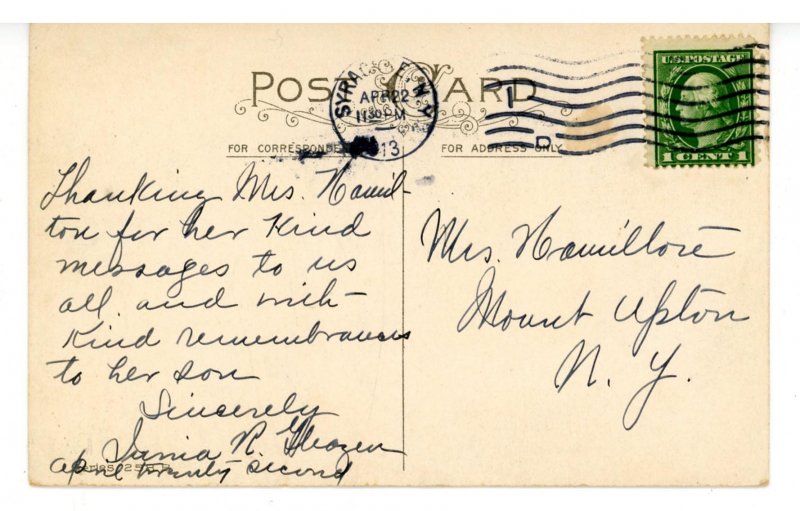 POST CARD
SYRAC E, N.Y.
APR 22
11 30 PM
13
U.S. POSTAGE
1 CENT 1
FOR CORRESPONDE
FOR ADDRESS ONLY
Thanking Mrs. Hamil-
ton for her kind
messages to us
all and with
kind remembrances
to her son
Sincerely
R.
April twenty second
Mrs. Hamilton
Mount Upton
N. Y.